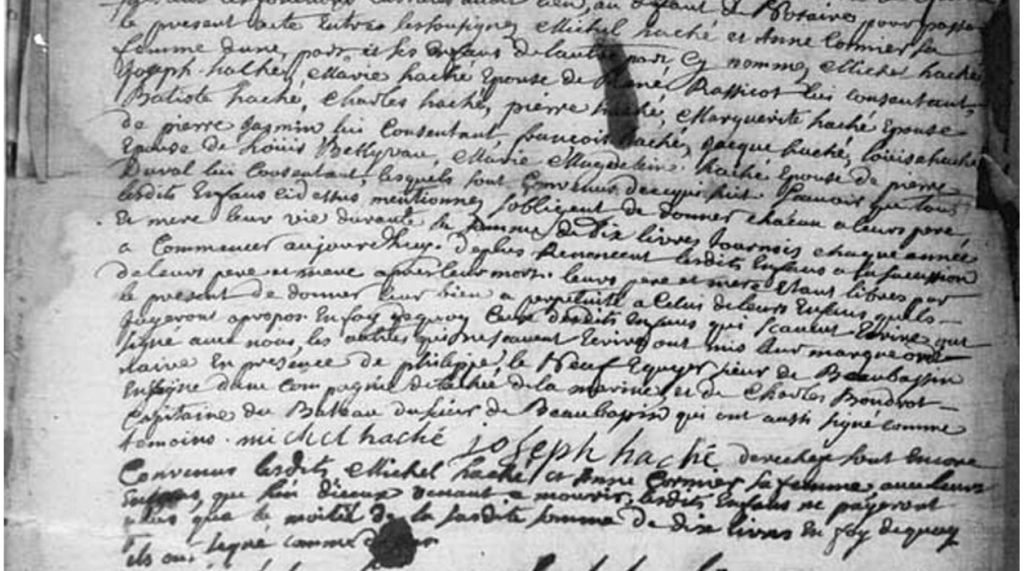 le present acte Entre les soussignez Michel haché et Anne Cormier sa
femme dune part et les Enfans de lautre part Cy nommez Michel haché
Joseph haché, Marie haché Epouse de René Rassicot lui consentant,
Batiste haché, Charles haché, pierre haché, Marguerite haché Epouse
de pierre Jasmin lui Consentant, francois haché, Jacque haché, louise haché
Epouse de Louis Belyvau, Marie Magdeleine haché Epouse de pierre
Duval lui Consentant, lesquels sont Convenus de ce qui suit Scavoir que tous
lesdits Enfans cidessus mentionnez sobligent de donner chacun a leurs pere
Et mere leur vie durante la somme de Dix livres tournois chaque année
a Commencer aujourdhuy. deplus Renoncent lesdits Enfans a la succession
de leurs pere et mere apres leur mort. leurs pere et mere Etant libres par
le present de donner leur bien a perpetuité a Celui de leurs Enfans quils
Jugeront apropos En foy dequoy Ceux desdits Enfans qui scavent Ecrire ont
signé avec nous, les autres qui ne scavent Ecrire ont mis leur marque ordi
naire En presence de philippe le Neuf Equyer sieur de Beaubassin
Enseigne dune Compagnie detachée de la marine, et de Charles Boudrot
Capitaine du Bateau du sieur de Beaubassin qui ont aussi signé comme
temoins. michel haché joseph haché derechef sont encore
Convenus lesdits Michel haché et Anne Cormier sa femme, avec leurs
Enfans, que lun dieux venant a mourir, lesdits Enfans ne payeront
plus que la moitié de la susdite somme de dix livres En foy dequoy
ils ont signé comme